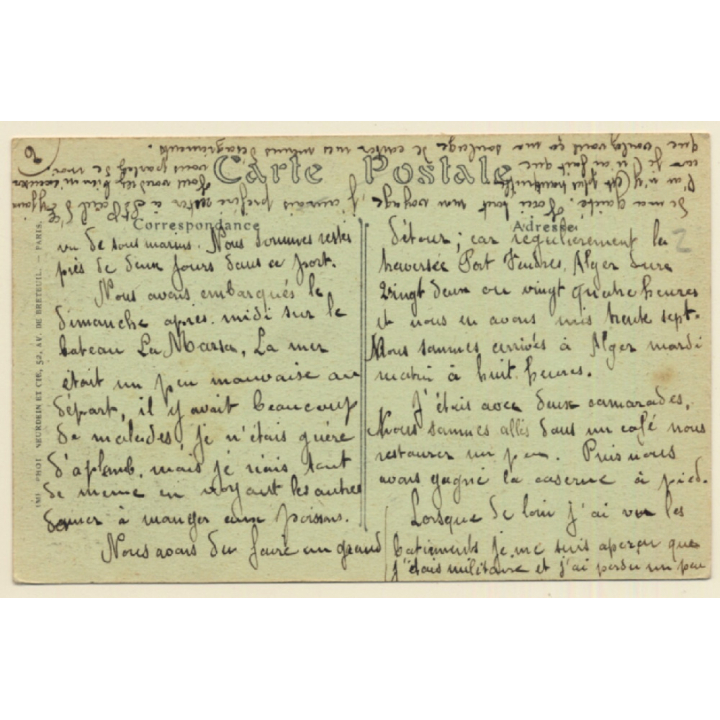 6
Carte Postale
Correspondance
Adresse
2
IMP. PHOT. NEURDEIN ET CIE, 52, AV. DE BRETEUIL. — PARIS.
vu de sous marins. Nous sommes restés
près de deux jours dans ce port.
Nous avons embarqués le
dimanche après-midi sur le
bateau La Marsa. La mer
était un peu mauvaise au
départ, il y avait beaucoup
de malades, je n'étais guère
d'aplomb, mais je riais tout
de même en voyant les autres
donner à manger aux poissons.
Nous avons du faire un grand
détour; car régulièrement la
traversée Port Vendres, Alger dure
vingt deux ou vingt quatre heures
et nous en avons mis trente sept.
Nous sommes arrivés à Alger mardi
matin à huit heures.
J'étais avec deux camarades.
Nous sommes allés dans un café nous
restaurer un peu. Puis nous
avons gagné la caserne à pied.
Lorsque de loin j'ai vu les
batiments je me suis aperçu que
j'étais militaire et j'ai perdu un peu
de ma gaité. Voici tout mon voyage
j'aurais préféré rester à St Paul d'
que voulez vous ça me soulage de conter mes menus désagréments.
vous parler de moi.